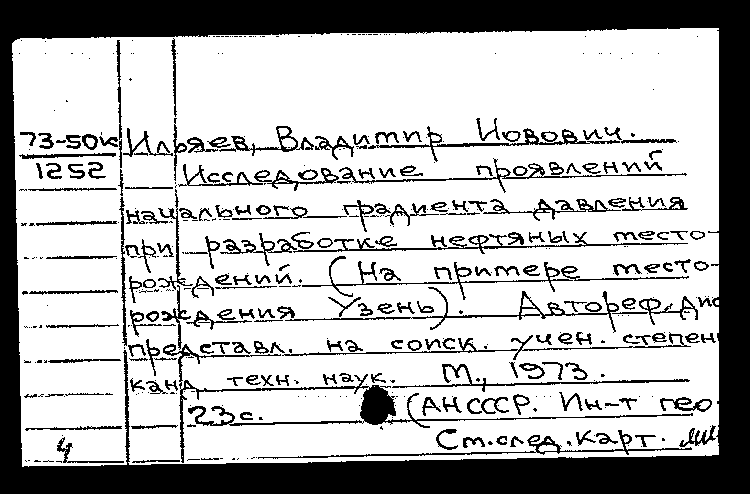 73-50к Ильяев, Владимир Иовович.
1252 Исследование проявлений
начального градиента давления
при разработке нефтяных место-
рождений. (На примере место-
рождения Узень). Автореф. дис
представл. на соиск. учен. степен
канд. техн. наук. М., 1973.
23с. (АН СССР. Ин-т гео-
4 См. след. карт.